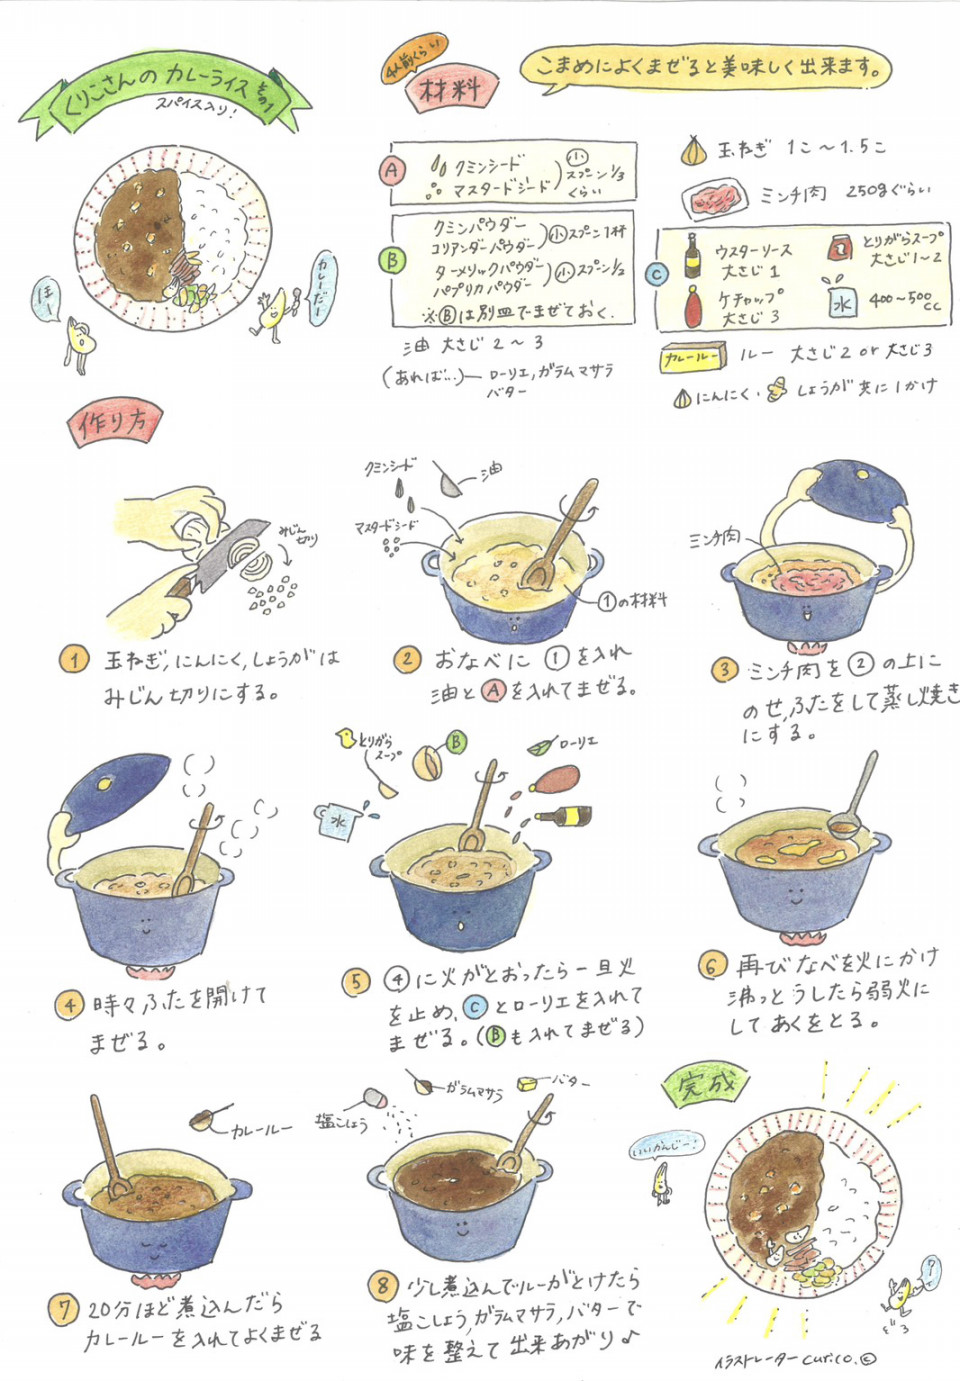 くりこさんの カレーライス その1
スパイス入り!
4人前くらい
材料
こまめによくまぜると美味しく出来ます。
ほー
カレーだー
A
クミンシード
マスタードシード
小スプーン1/3
くらい
B
クミンパウダー
コリアンダーパウダー
小スプーン1杯
ターメリックパウダー
パプリカパウダー
小スプーン1/2
※Bは別皿でまぜておく.
油 大さじ2〜3
(あれば…)ローリエ,ガラムマサラ
バター
玉ねぎ 1こ〜1.5こ
ミンチ肉 250gぐらい
C
ウスターソース
大さじ1
とりがらスープ
大さじ1〜2
ケチャップ
大さじ3
水
400〜500
cc
カレールー
ルー 大さじ2 or 大さじ3
にんにく・しょうが 共に1かけ
作り方
みじん
切り
1 玉ねぎ,にんにく,しょうがは
みじん切りにする。
クミンシード
油
マスタードシード
①の材料
2 おなべに ① を入れ
油と A を入れてまぜる。
ミンチ肉
3 ミンチ肉を ② の上に
のせ,ふたをして蒸し焼き
にする。
4 時々ふたを開けて
まぜる。
とりがら
スープ
B
ローリエ
水
5 ④に火がとおったら一旦火
を止め、C とローリエを入れて
まぜる。(Bも入れてまぜる)
6 再びなべを火にかけ
沸っとうしたら弱火に
してあくをとる。
カレールー
7 20分ほど煮込んだら
カレールーを入れてよくまぜる
塩こしょう
ガラムマサラ
バター
8 少し煮込んでルーがとけたら
塩こしょう,ガラムマサラ,バターで
味を整えて出来あがり♪
完成
いいかんじー!
イラストレーター curico.©